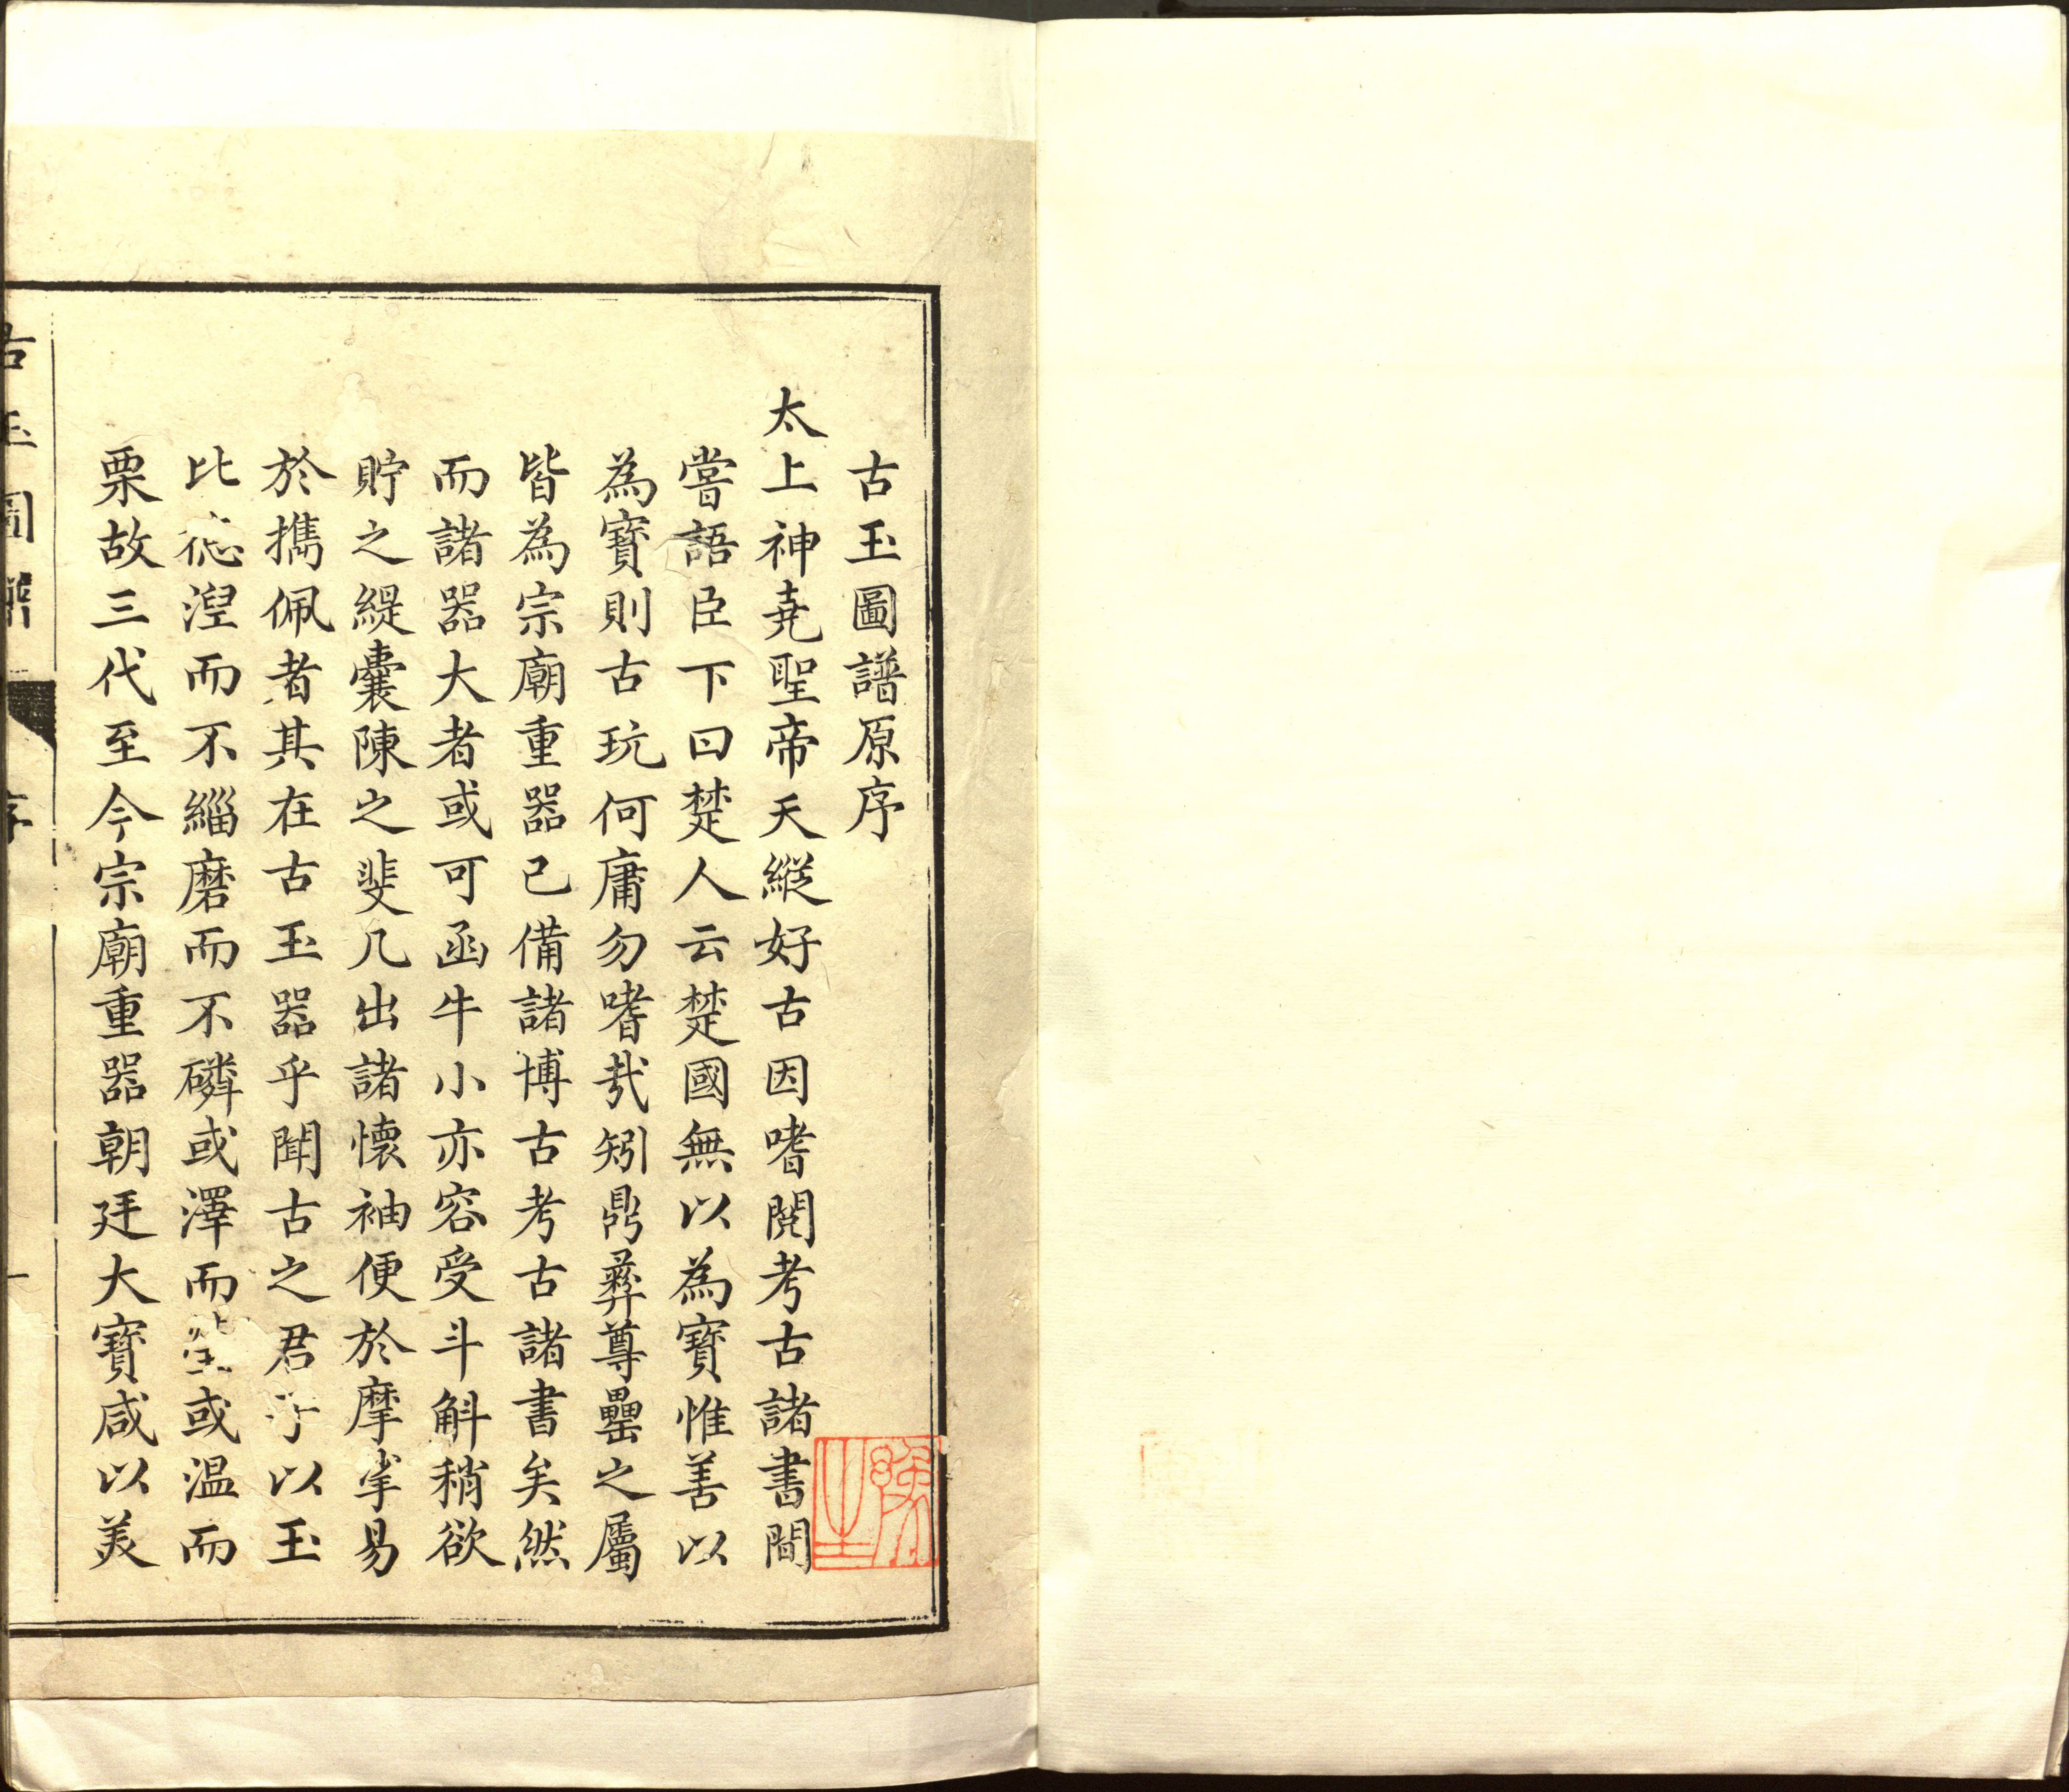 古玉圖譜原序
太上神堯聖帝天縱好古因嗜閱考古諸書間
嘗語臣下曰楚人云楚國無以為寶惟善以
為寶則古玩何庸勿嗜㢤矧鼎彝尊罍之屬
皆為宗廟重器已備諸博古考古諸書矣然
而諸器大者或可函牛小亦容受斗斛稍欲
貯之緹囊陳之斐几出諸懷袖便於摩挲易
於攜佩者其在古玉器乎聞古之君子以玉
比德湼而不緇磨而不磷或澤而堅或温而
栗故三代至今宗廟重器朝廷大寶咸以美
古玉圖譜
序
一